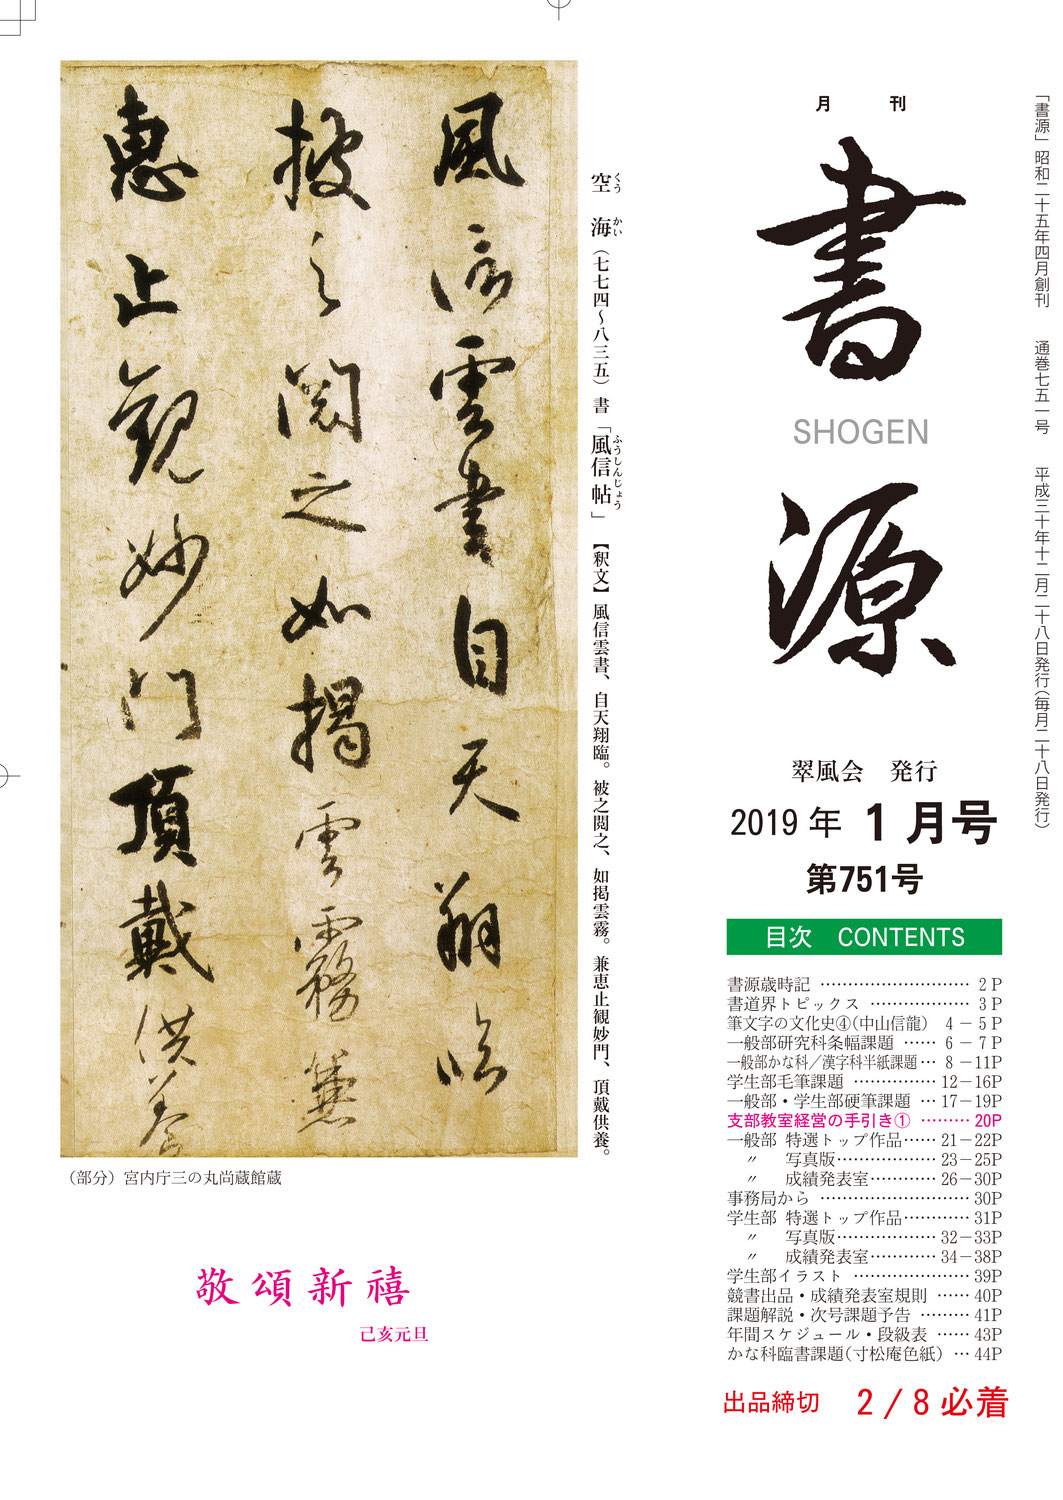 「書源」昭和二十五年四月創刊　通巻七五一号　平成三十年十二月二十八日発行(毎月二十八日発行)
月刊
書
SHOGEN
源
翠風会　発行
2019年 1月号
第751号
目次　CONTENTS
書源歳時記 ………………………… 2P
書道界トピックス ……………… 3P
筆文字の文化史④(中山信龍)　4－5P
一般部研究科条幅課題 …… 6－7P
一般部かな科／漢字科半紙課題… 8－11P
学生部毛筆課題 …………… 12－16P
一般部・学生部硬筆課題 … 17－19P
支部教室経営の手引き① ……… 20P
一般部 特選トップ作品…… 21－22P
〃　写真版……………… 23－25P
〃　成績発表室………… 26－30P
事務局から ……………………… 30P
学生部 特選トップ作品………… 31P
〃　写真版……………… 32－33P
〃　成績発表室………… 34－38P
学生部イラスト ………………… 39P
競書出品・成績発表室規則 …… 40P
課題解説・次号課題予告 ……… 41P
年間スケジュール・段級表 …… 43P
かな科臨書課題(寸松庵色紙) … 44P
出品締切　2/8必着
空海(七七四〜八三五)書「風信帖」【釈文】風信雲書、自天翔臨。被之閲之、如掲雲霧。兼恵止観妙門、頂戴供養。
くうかい
ふうしんじょう
風信雲書自天翔臨
披之閲之如揭雲霧兼
恵止観妙門頂戴供養
(部分)宮内庁三の丸尚蔵館蔵
敬頌新禧
己亥元旦